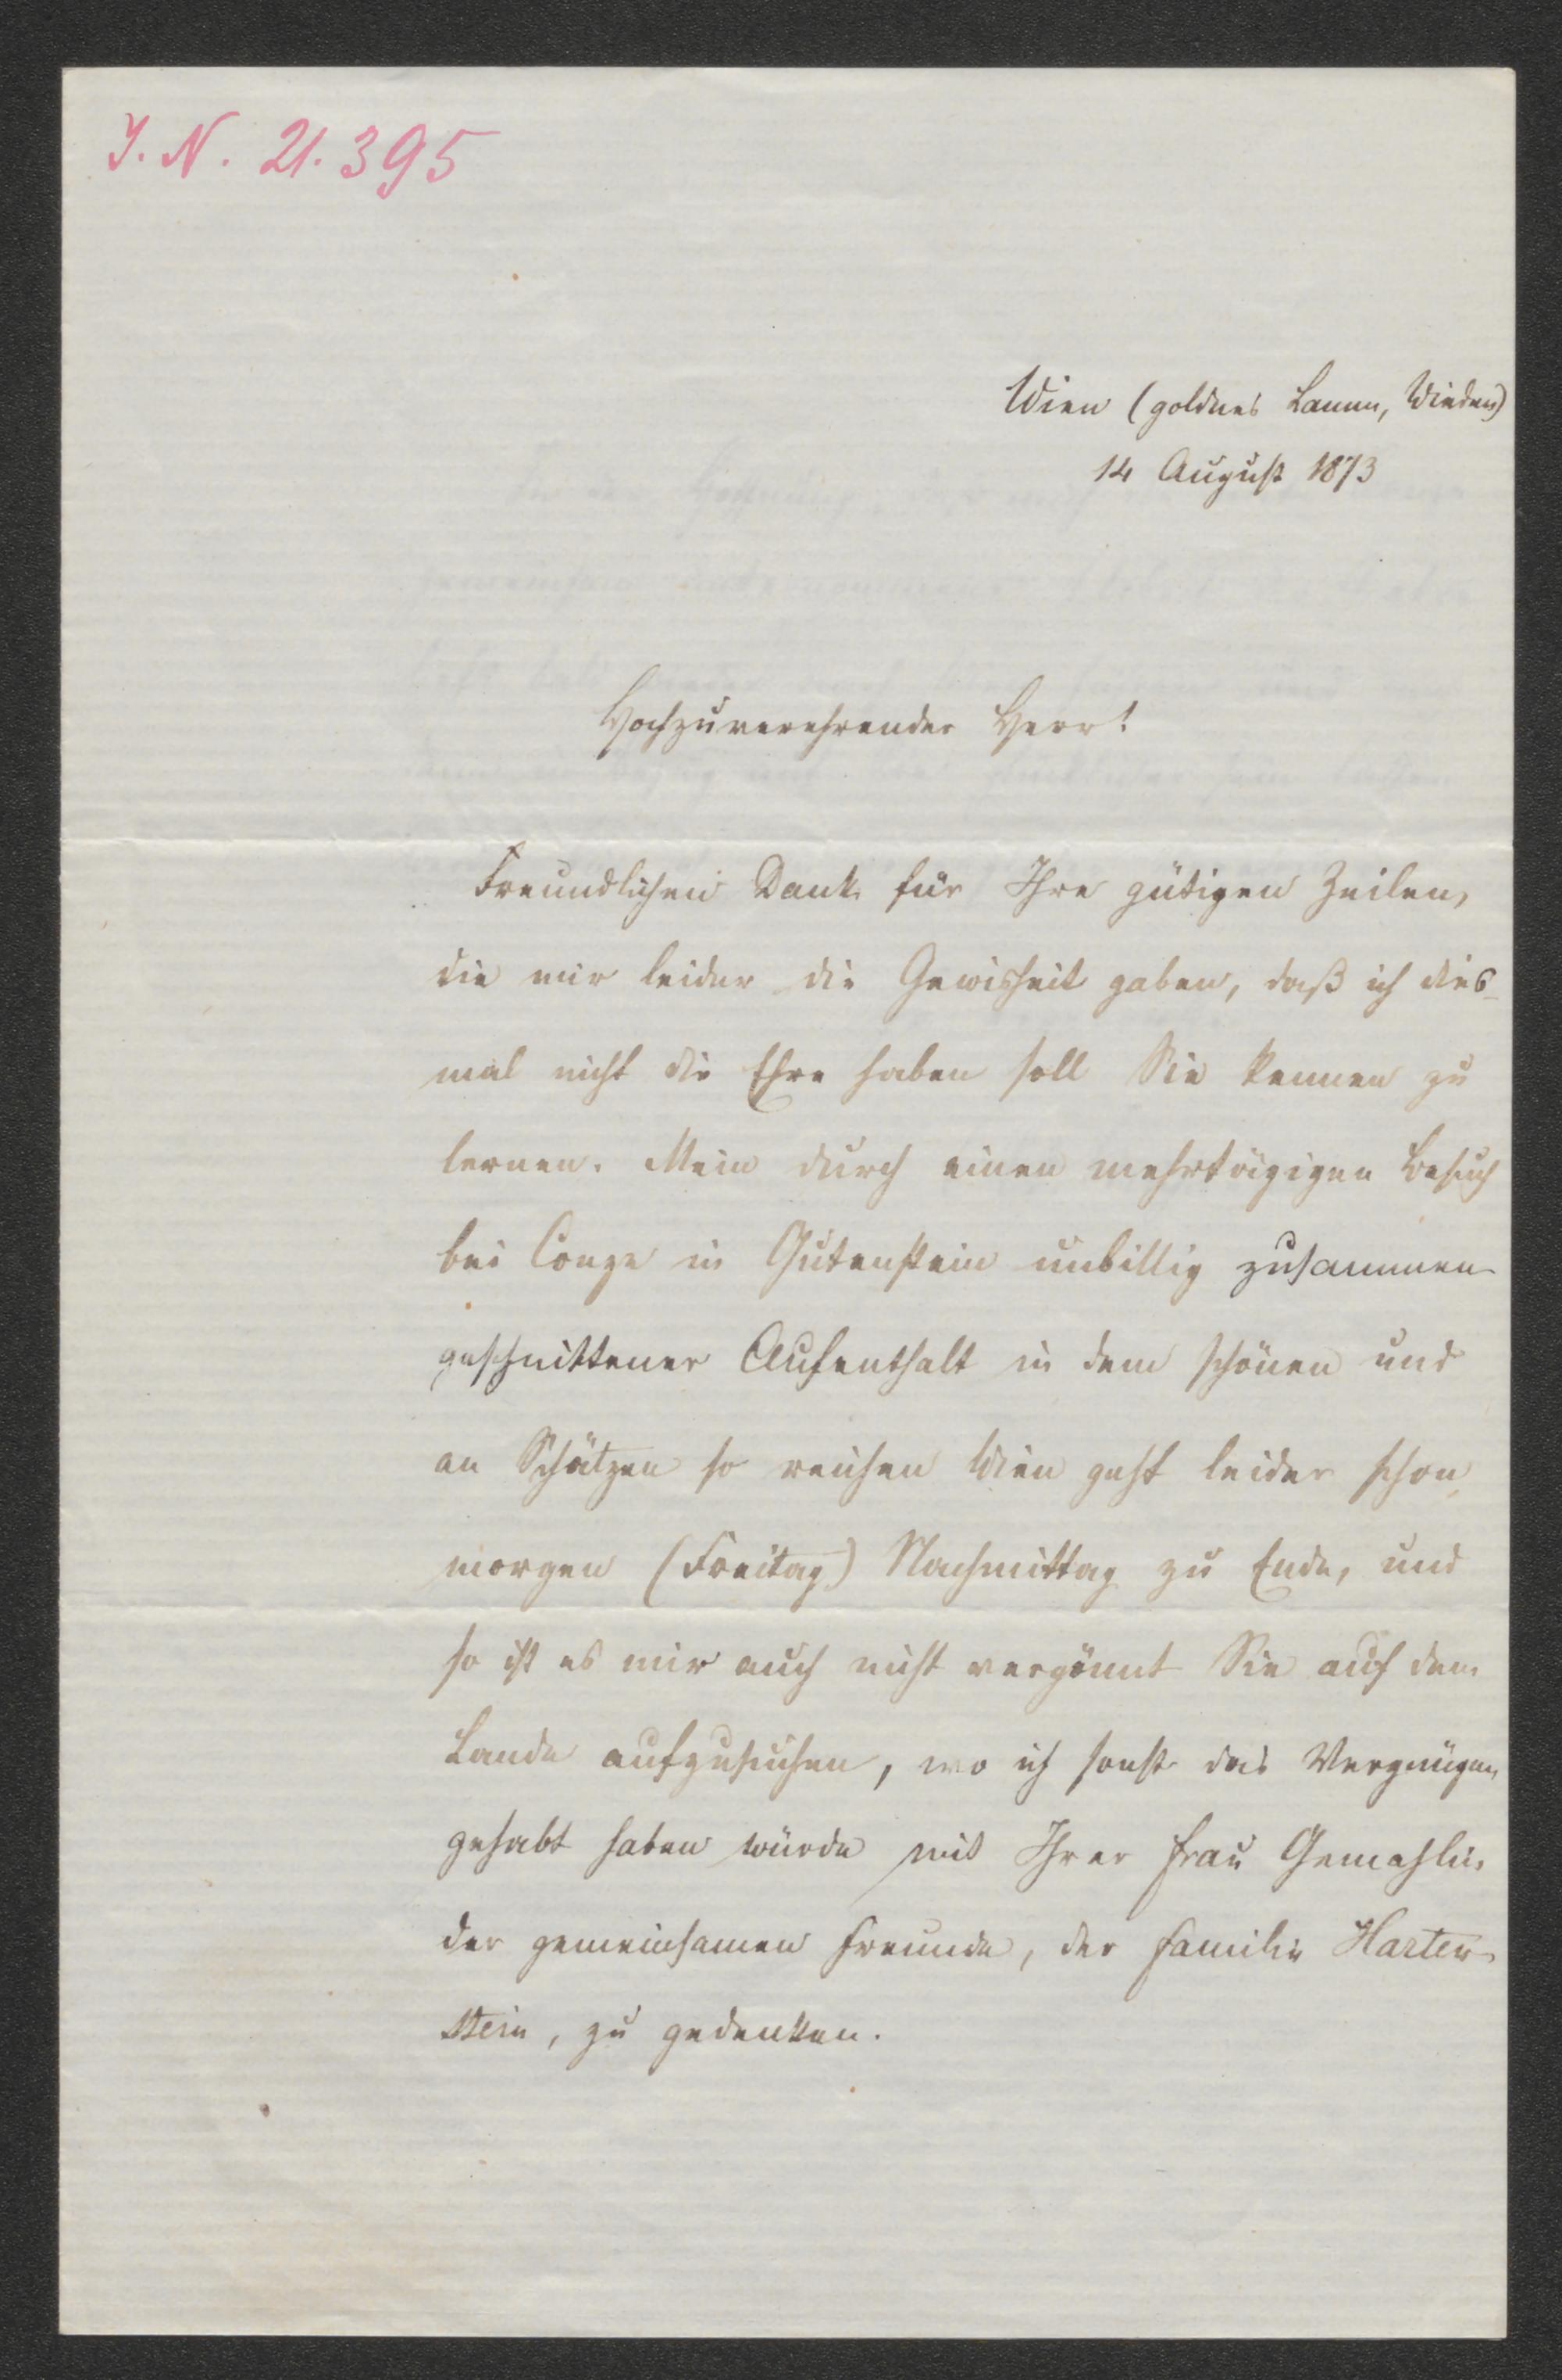 J. N. 21.395
Wien (goldnes Lamm, Wieden)
14 August 1873
Hochzuverehrender Herr!
Freundlichen Dank für Ihre gütigen Zeilen,
die mir leider die Gewisheit gaben, daß ich dies-
mal nicht die Ehre haben soll Sie kennen zu
lernen. Mein durch einen mehrtägigen Besuch
bei Conze in Gutenstein unbillig zusammen-
geschnittener Aufenthalt in dem schönen und
an Schätzen so reichen Wien geht leider schon
morgen (Freitag) Nachmittag zu Ende, und
so ist es mir auch nicht vergönnt Sie auf dem
Lande aufzusuchen, wo ich sonst das Vergnügen
gehabt haben würde mit Ihrer Frau Gemahlin
der gemeinsamen Freunde, der Familie Harten-
stein, zu gedenken.